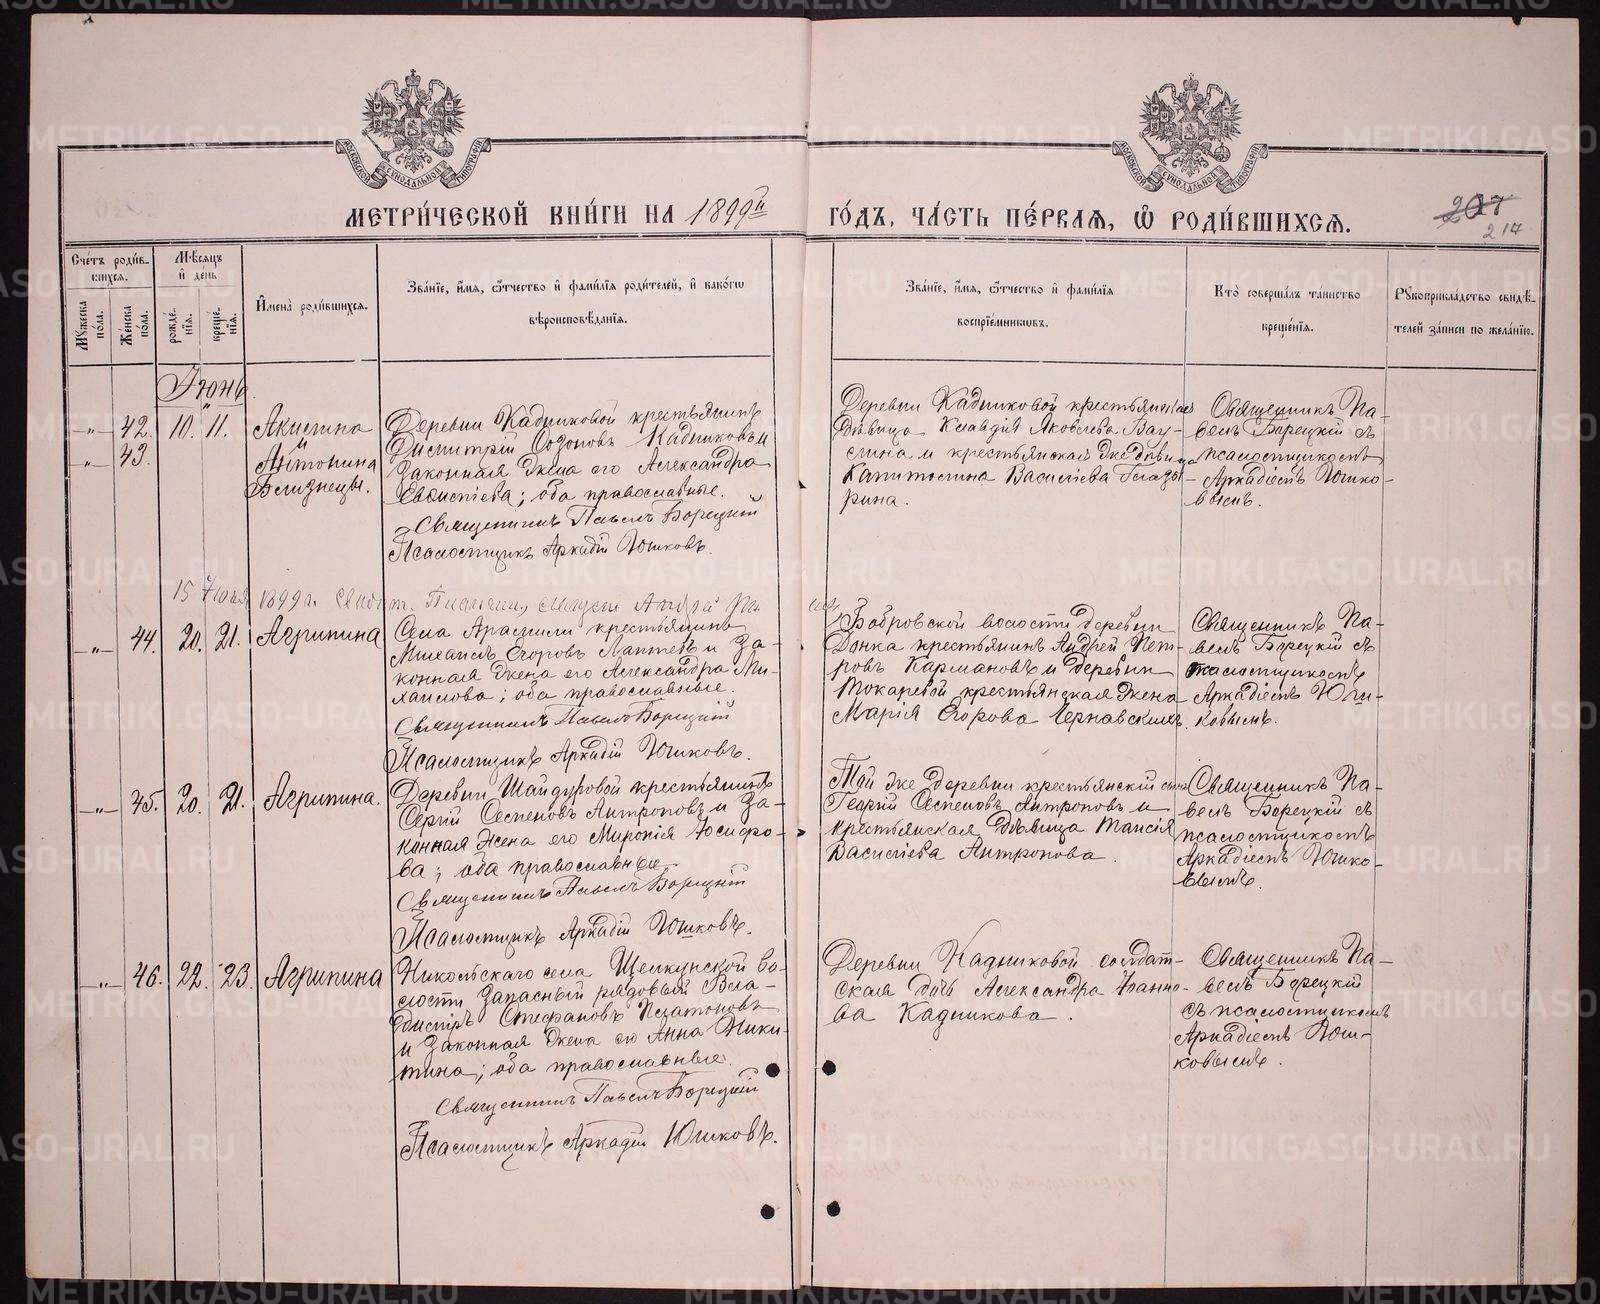 МЕТРИ́ЧЕСКОЙ КНИ́ГИ НА 1899й
ГО́ДЪ, ЧА́СТЬ ПЕ́РВАѦ, Ѡ҆ РОДИ́ВШИХСѦ.
207
217
Сче́тъ роди́в-
шихся.
Мѣ́сяцъ
и҆ де́нь
Мꙋ́жеска
по́ла.
Же́нска
по́ла.
рожде́-
нїѧ.
креще́-
нїѧ.
И҆мена̀ роди́вшихся.
Зва́нїе, и҆́мѧ, ѻ҆́тчество и҆ фами́лїѧ роди́телей, и҆ како́гѡ
вѣроисповѣ́данїѧ.
Зва́нїе, и҆́мѧ, ѻ҆́тчество и҆ фами́лїѧ
воспрїе́мникѡвъ.
Кто̀ соверша́лъ та́инство
креще́нїѧ.
Рꙋкоприкла́дство свидѣ́-
телей за́писи по жела́нїю.
Іюнь.
-"- 42. 10. 11. Акилина
" 43. и
Антонина
Близнецы.
Деревни Кадниковой крестьянинъ
Димитрій Созоновъ Кадниковъ и
законная жена его Александра
Евѳимiева; оба православные.
Священникъ Павелъ Борецкій
Псаломщикъ Аркадій Юшковъ.
Деревни Кадниковой крестьянская
дѣвица Клавдія Яковлева Вах-
и крестьянская же дѣвица
Капитолина Василіева Глазы-
рина.
Священникъ Па-
велъ Борецкій съ
псаломщикомъ
Аркадіемъ Юшко-
вымъ.
15 Іюля 1899 г.
-"- 44. 20. 21. Агрипина
Села Арамили крестьянинъ
Михаилъ Егоровъ Лаптевъ и за-
конная жена его Александра Ми-
хаилова; оба православные.
Священникъ Павелъ Борецкій
Псаломщикъ Аркадій Юшковъ.
Бобровской волости деревни
крестьянинъ Андрей Пет-
ровъ Кармановъ и деревни
Токаревой крестьянская жена
Марія Егорова
Священникъ Па-
велъ Борецкій съ
псаломщикомъ
Аркадіемъ Юш-
ковымъ.
-"- 45. 20. 21. Агрипина.
Деревни Шайдуровой крестьянинъ
Сергій Семеновъ Антроповъ и за-
конная жена его Миронія Іосифо-
ва; оба православные
Священникъ Павелъ Борецкій
Псаломщикъ Аркадій Юшковъ.
Той же деревни крестьянскій сынъ
Георгій Семеновъ Антроповъ и
крестьянская дѣвица Таисія
Василіева Антропова.
Священникъ Па-
велъ Борецкій съ
псаломщикомъ
Аркадіемъ Юшко-
вымъ.
-"- 46. 22. 23. Агрипина
Никольскаго села Щелкунской во-
лости запасный рядовый Вла-
димiръ Стефановъ Платоновъ
и законная жена его Анна Ники-
тина; оба православные.
Священникъ Павелъ Борецкій
Псаломщикъ Аркадій Юшковъ.
Деревни Кадниковой солдат-
ская дочь Александра Іоанно-
ва Кадникова.
Священникъ Па-
велъ Борецкій
съ псаломщикомъ
Аркадіемъ Юш-
ковымъ.
METRIKI.GASO-URAL.RU